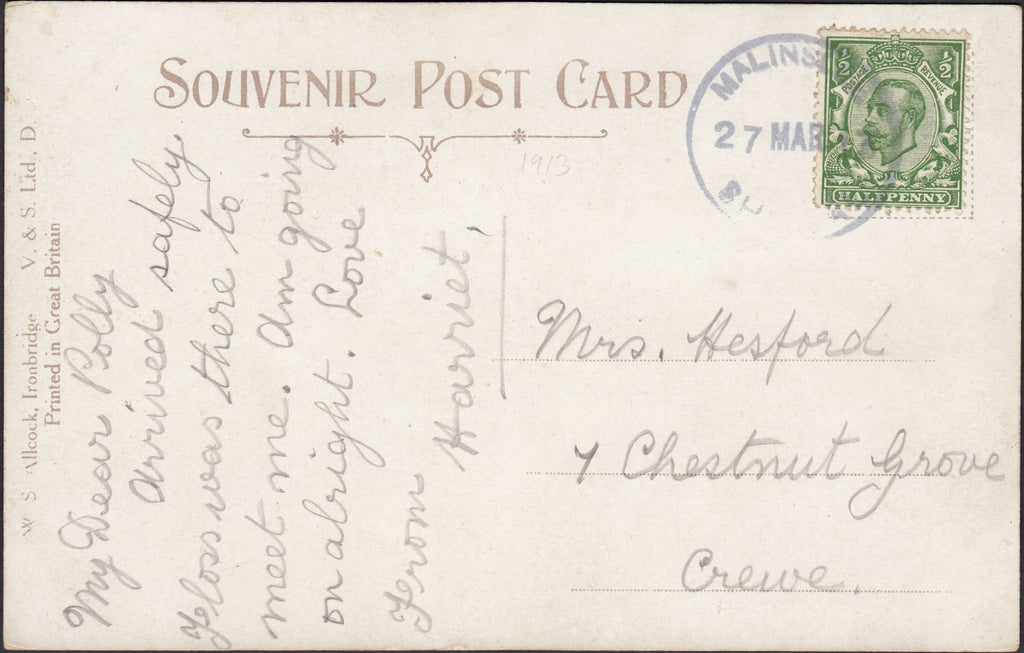 SOUVENIR POST CARD
1913
MALINS
27 MAR
½ ½
POSTAGE REVENUE
HALFPENNY
W S Allcock, Ironbridge V. & S. Ltd., D.
Printed in Great Britain
My Dear Polly
Arrived safely.
Floss was there to
meet me. Am going
on alright. Love
From Harriet,
Mrs. Hesford
7 Chestnut Grove
Crewe.